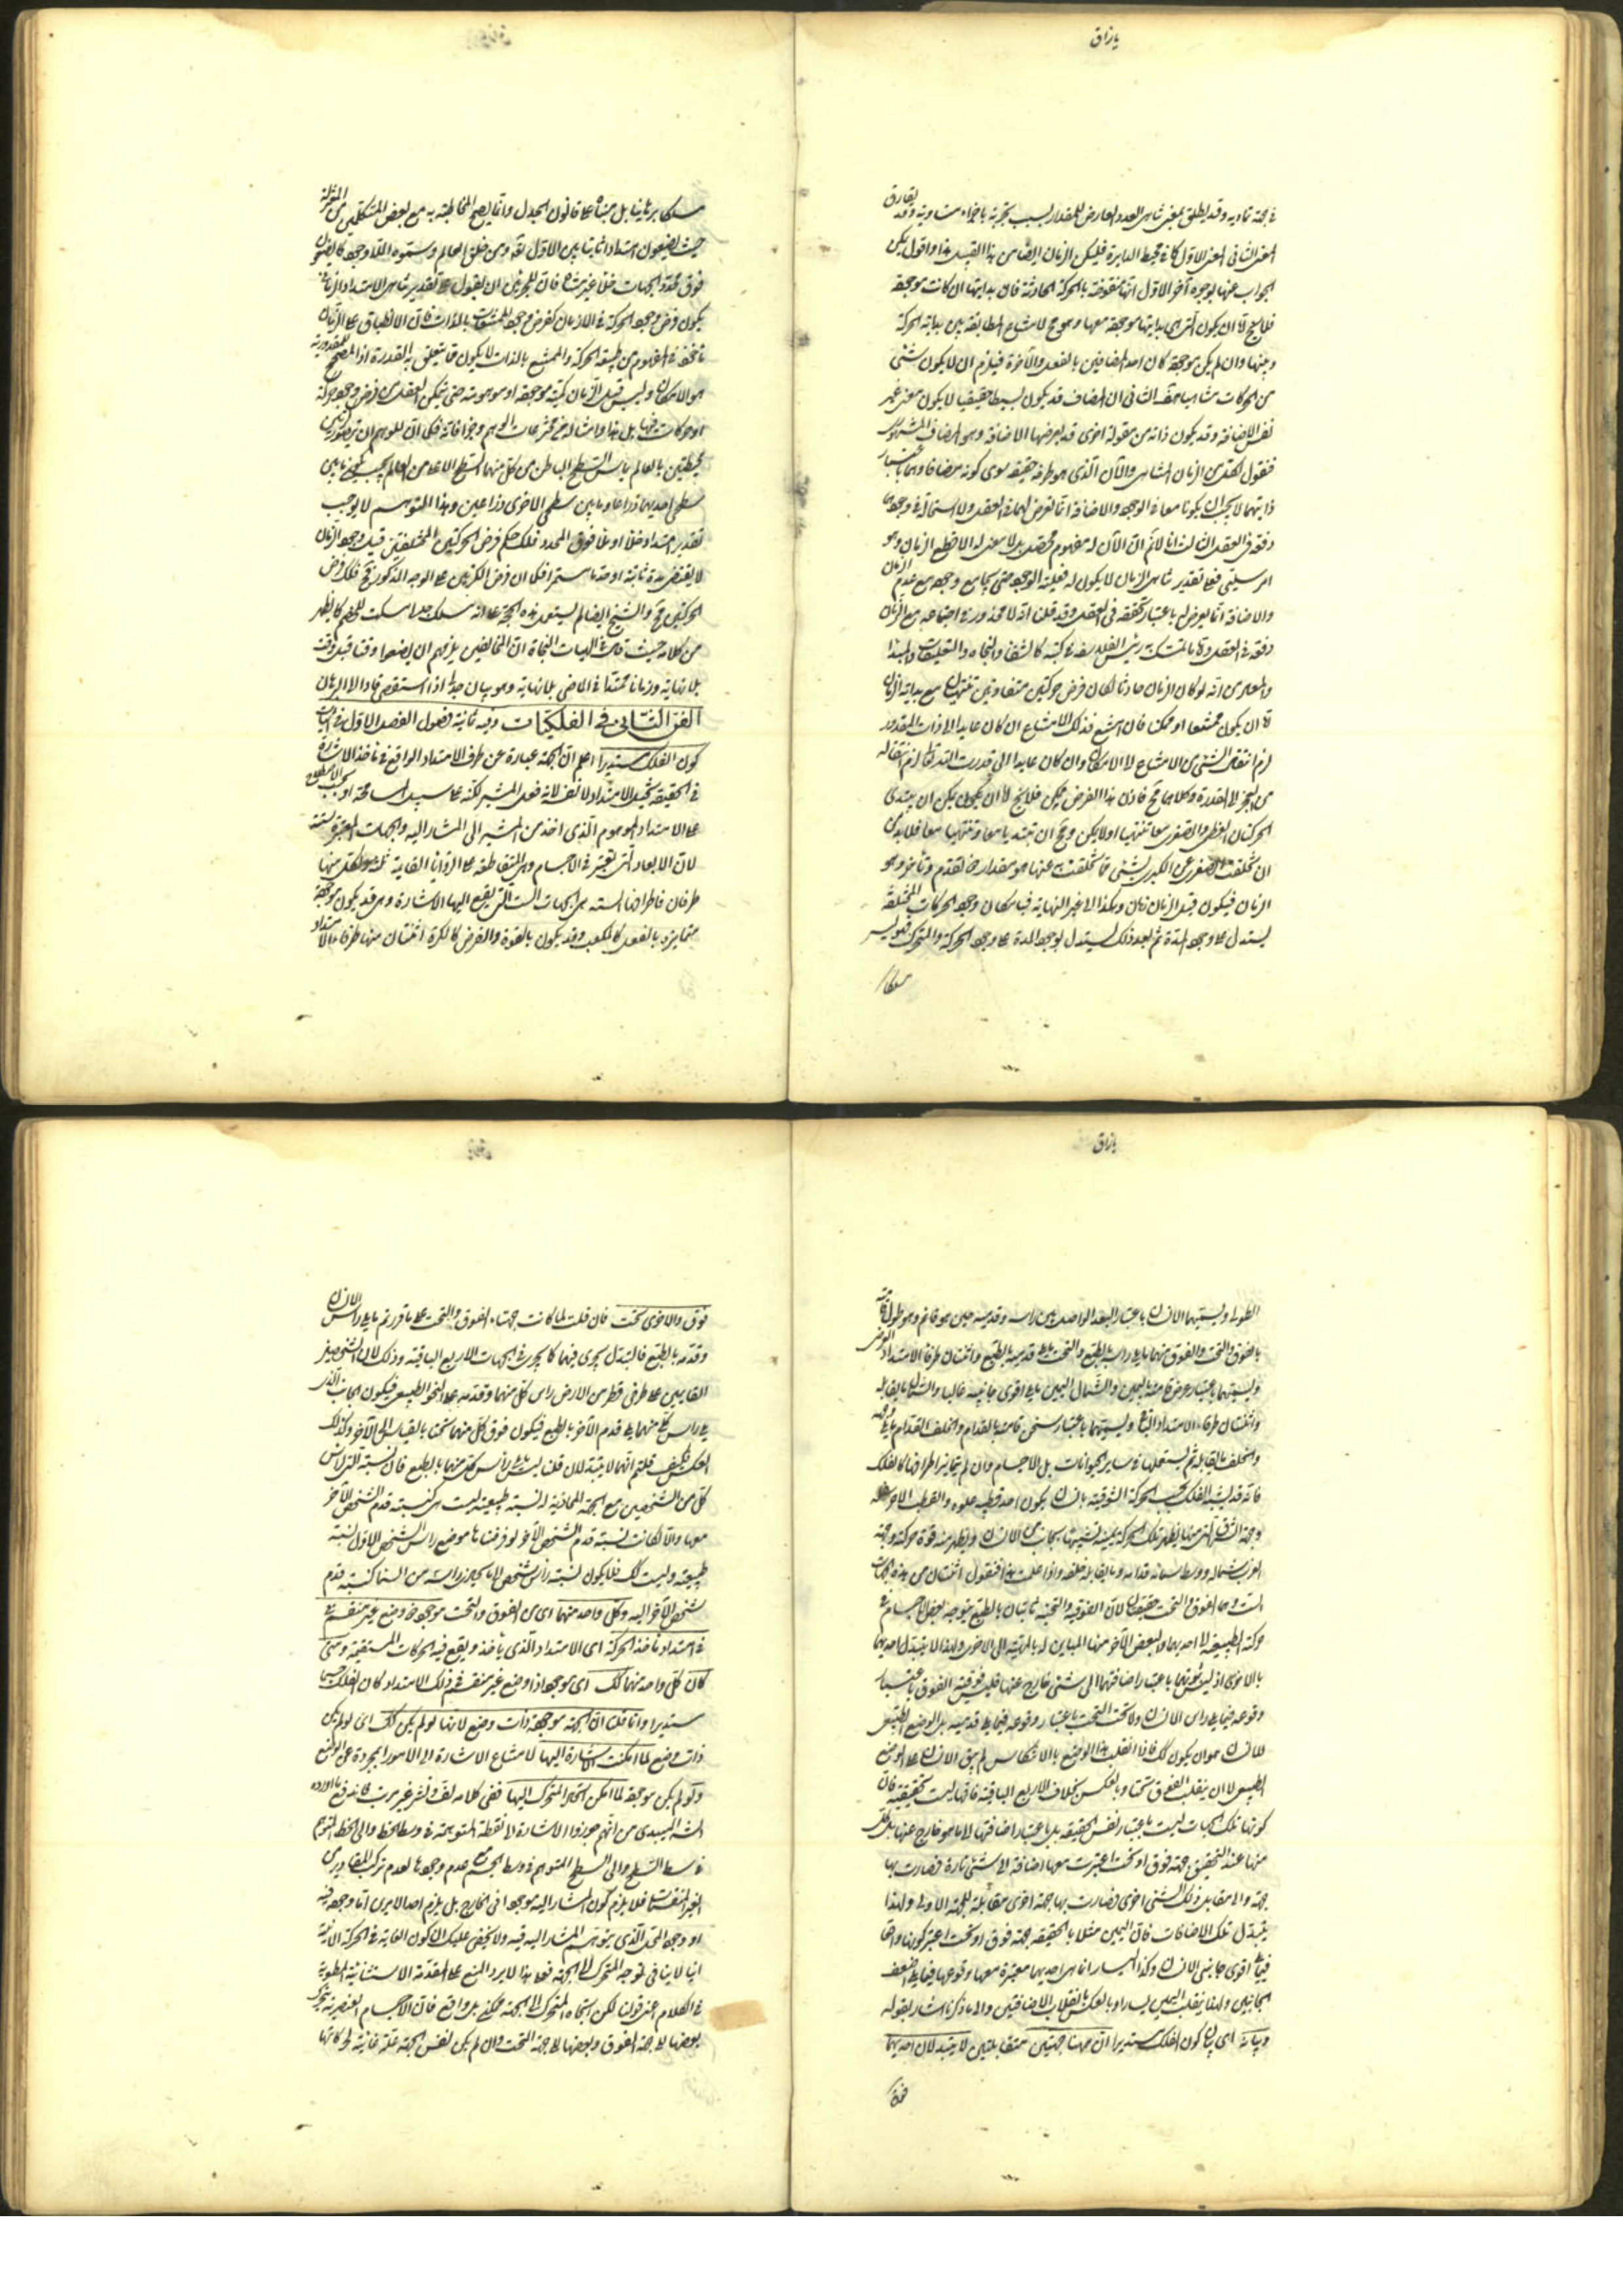 يا رزاق
في جهة تماديه وقد يطلق بمعنى تناهي العدد العارض للمقدار بسبب تجزيته باجزاء متساوية وقد يفارق
المعنى الثاني المعنى الاول كما في محيط الدايرة فليكن الزمان ايضا من هذا القبيل هذا واقول يمكن
الجواب عنها بوجوه آخر الاول انها منقوضة بالحركة الحادثة فان بدايتها ان كانت موجودة
فلا يخ اما ان يكون
وبينها وان لم يكن موجودة كان احد المضافين بالفعل والآخر بالقوة فيلزم ان لا يكون شئ
من الحركات متناهيا هف الثاني ان المضاف قد يكون بسيطا حقيقيا لا يكون معنى غير
نفس الاضافة وقد يكون ذاته من مقولة اخرى قد يعرضها الاضافة وهو المضاف المشهور
فنقول المتقدم من الزمان المتناهي والآن الذي هو طرفه حقيقة سوى كونه مضافا وهما باعتبار
ذاتيهما لا يجب ان يكونا معا في الوجود والاضافة انما تعرض لهما في العقل ولا استحالة في وجودهما
دفعة في العقل الثالث انا لا نم ان الآن له مفهوم محصل بل لا معنى له الا قطع الزمان وهو
امر سلبي فعلى تقدير تناهي الزمان لا يكون له فعلية الوجود حتى يجامع وجوده مع عدم الزمان
والاضافة انما يعرض له باعتبار تحققه في العقل وقد قلنا انه لا محذور في اجتماعه مع الزمان
دفعة في العقل وما تمسك به رئيس الفلاسفة في كتبه كالشفا والنجاة والتعليقات والمبدا
والمعاد من انه لو كان الزمان حادثا لكان فرض حركتين متفاوتين تنتهيان مع بداية الزمان
اما ان يكون ممتنعا او ممكنا فان امتنع فذلك الامتناع ان كان عايدا الى ذات المقدور
لزم انتقال الشئ من الامتناع الى الامكان وان كان عايدا الى قدرت القدير تعالى لزم انتقاله
من العجز الى القدرة وكلاهما مح فاذن هذا الفرض ممكن فلا يخ اما ان يكون يمكن ان يبتدئ
الحركتان العظمى والصغرى معا وتنتهيا معا او لا يمكن ومح ان تبتديا معا وتنتهيا معا فلا بد من
ان تخلفت الصغرى عن الكبرى بشئ فما تخلفت به عنها هو مقدار فيه تقدم وتأخر وهو
الزمان فيكون قبل الزمان زمان وهكذا الى غير النهاية فبامكان وجود الحركات المختلفة
يستدل على وجود المدة ثم بعد ذلك يستدل بوجود المدة على وجود الحركة والمتحرك فهو ليس
مسلكا
مسلكا برهانيا بل مبناه على قانون الجدل وانما يصح المخاطبة به مع بعض المتكلمين من المعتزلة
حيث يضعون امتدادا ثابتا بين الاول تعالى وبين خلق العالم ويسمونه اللاوجود كما يضعون
فوق محدد الجهات خلأ غير متناه فان للمجوزين ان يقول على تقدير تناهي الامتداد الزماني
يكون فرض وجود الحركة في اللازمان كفرض وجود الممتنعات بالذات فان الانطباق على الزمان
مأخوذ في المفهوم من طبيعة الحركة والممتنع بالذات لا يكون مما يتعلق به القدرة اذ المصحح للمقدورية
هو الامكان وليس قبل الزمان كمية موجودة او موهومة حتى يمكن للعقل من فرض وجود حركة
او حركات فيها بل هذا وامثاله من مخترعات الوهم وجزافاته فكما ان للوهم ان يتصور كرتين
محيطتين بالعالم يماس السطح الباطن من كل منهما السطح الاعلى من العالم بحيث يكون ما بين
سطحي احديهما ذراعا وما بين سطحي الاخرى ذراعين وهذا التوهم لا يوجب
تقدير امتداد خلأ او ملأ فوق المحدد فلك حكم فرض الحركتين المختلفتين قبل وجود الزمان
لا يقتضي مدة ثابتة او حدثا مستمرا فكما ان فرض الكرتين على الوجه المذكور مح فكذلك فرض
الحركتين مح والشيخ ايضا لم يستعمل هذه الحجة على انه مسلك جدلي اسكت للخصم كما يظهر
من كلامه حيث قال في الهيات النجاة ان المخالفين يلزمهم ان يضعوا وقتا قبل وقت
بلا نهاية وزمانا ممتدا في الماضي بلا نهاية وهو بيان جدلي اذا استقصى مال الى البرهان
الفن الثاني في الفلكيات وفيه ثمانية فصول الفصل الاول في اثبات
كون الفلك مستديرا اعلم ان الجهة عبارة عن طرف الامتداد الواقع في مأخذ الاشارة
في الحقيقة تخيل الامتداد لا نفسه لانه فعل المشير لكنه على سبيل المسامحة او بحسب الاصطلاح
على الامتداد الموهوم الذي اخذ من المشير الى المشار اليه والجهات المعتبرة ستة
لان الابعاد التي تعتبر في الاجسام وهي المتقاطعة على الزوايا القايمة ثلثة ولكل منها
طرفان فاطرافها الستة هي الجهات الست التي يقع اليها الاشارة وهي قد يكون موجودة
متمايزة بالفعل كالمكعب وقد يكون بالقوة والفرض كالكرة اثنتان منها طرفا الامتداد
يا رزاق
الطولي ويسميهما الانسان باعتبار البعد الواصل بين راسه وقدميه حين هو قائم وهو طول قامته
بالفوق والتحت والفوق منهما ما يلي راسه بالطبع والتحت ما يلي قدميه بالطبع واثنتان طرفا الامتداد العرضي
ويسميهما باعتبار عرض قامته باليمين والشمال اليمين ما يلي اقوى جانبيه غالبا والشمال ما يقابله
واثنتان طرفا الامتداد الباقي ويسميهما باعتبار ثخن قامته بالقدام والخلف القدام ما يلي وجهه
والخلف ما يقابله ثم يستعملها في ساير الحيوانات بل الاجسام وان لم يتمايز اطرافها كالفلك
فانه قد يشبه الفلك بحسب الحركة الشرقية بانسان يكون احد قطبيه علوه والقطب الآخر سفله
وجهة الشرق التي منها يظهر تلك الحركة يمينه لشبهها بجانب من الانسان ويظهر منه قوة حركته وجهة
الغرب شماله ووسط سمائه قدامه وما يقابله خلفه واذا علمت هذا فنقول اثنتان من هذه الجهات
الست وهما الفوق والتحت حقيقيتان لان الفوقية والتحتية ثابتان بالطبع يتوجه بعض الاجسام في
حركته الطبيعية الى احديهما والبعض الآخر منها المباين له بالماهية الى الاخرى ولهذا لا يتبدل احديهما
بالاخرى اذ ليس ثبوتهما باعتبار اضافتهما الى شئ خارج عنها فليس فوقية الفوق باعتبار
وقوعه فيما يلي راس الانسان ولا تحت التحت باعتبار وقوعه فيما يلي قدميه بل الوضع الطبيعي
للانسان هو ان يكون كك فاذا انقلب هذا الوضع بالانتكاس لم يبق الانسان على الوضع
الطبيعي لا ان ينقلب الفوق تحتا وبالعكس بخلاف الاربع الباقية فانها ليست حقيقية فان
كونها تلك الجهات ليست باعتبار نفس الحقيقة بل باعتبار اضافتها الى ما هو خارج عنها بل كل
منها عند التحقيق جهة فوق او تحت اعتبرت معها اضافة الى شئ تارة فصارت بها
جهة والى مقابل ذلك الشئ اخرى فصارت بها جهة اخرى مقابلة للجهة الاولى ولهذا
يتبدل تلك الاضافات فان اليمين مثلا بالحقيقة جهة فوق او تحت اعتبر كونها واقعا
فيما يلي اقوى جانبي الانسان وكذا اليسار انما هي احديهما معتبرة معها وقوعها فيما يلي اضعف
الجانبين ولهذا ينقلب اليمين يسارا وبالعكس بانقلاب الاضافتين والى ما ذكرنا اشار بقوله
وبيانه اي بيان كون الفلك مستديرا ان ههنا جهتين متقابلتين لا يتبدلان احديهما
فوق
فوق والاخرى تحت فان قلت لما كانت جهتا الفوق والتحت على ما قررتم ما يلي راس الانسان
وقدمه بالطبع فالتبدل يجري فيهما كما يجري في الجهات الاربع الباقية وذلك لان الشخصين
القايمين على طرفي قطر من الارض راس كل منهما وقدمه على النحو الطبيعي فيكون الجانب الذي
يلي راس كل منهما يلي قدم الآخر بالطبع فيكون فوق كل منهما تحتا بالقياس الى الآخر وكذلك
العكس فكيف قلتم انهما لا يتبدلان قلنا ليس ما يلي راس كل منهما بالطبع فان النسبة التي لراس
كل من الشخصين مع الجهة المحاذية له نسبة طبيعية ليست هي كنسبة قدم الشخص الآخر
معها والا لكانت نسبة قدم الشخص الآخر لو فرضناها موضع راس الشخص الاول نسبة
طبيعية وليست كك فلا يكون نسبة راس شخص الى ما يحاذي راسه من السماء كنسبة قدم
شخص الآخر اليه وكل واحد منهما اي من الفوق والتحت موجود ذو وضع غير منقسم
في امتداد مأخذ الحركة اي الامتداد الذي يأخذ ويقع فيه الحركات المستقيمة ومتى
كان كل واحد منهما كك اي موجود ذا وضع غير منقسم في ذلك الامتداد كان الفلك جسما
مستديرا وانما قلنا ان الجهة موجودة ذات وضع لانها لو لم يكن كك اي لو لم يكن
ذات وضع لما امكنت الاشارة اليها لامتناع الاشارة الى الامور المجردة عن الوضع
ولو لم يكن موجودة لما امكن اتجاه المتحرك اليها ففي كلامه لف ونشر غير مرتب فاندفع ما اورده
الشارح الميبدي من انهم جوزوا الاشارة الى النقطة المتوهمة في وسط الخط والى الخط المتوهم
في وسط السطح والى السطح المتوهم في وسط الجسم مع عدم وجودها لعدم تركب المقادير من
الغير المنقسمات فلا يلزم كون المشار اليه موجودا في الخارج بل يلزم احد الامرين اما وجوده فيه
او وجود المحل الذي يتوهم المشار اليه فيه ولا يخفى عليك ان كون الغاية في الحركة الاينية
اينا لا ينافي توجه المتحرك الى الجهة فعلى هذا لا يرد المنع على المقدمة الاستثنائية المطوية
في الكلام اعني قولنا لكن اتجاه المتحرك الى الجهة ممكن بل واقع فان الاجسام العنصرية يتحرك
بعضها الى جهة الفوق وبعضها الى جهة التحت وان لم يكن نفس الجهة علة غائية لحركاتها